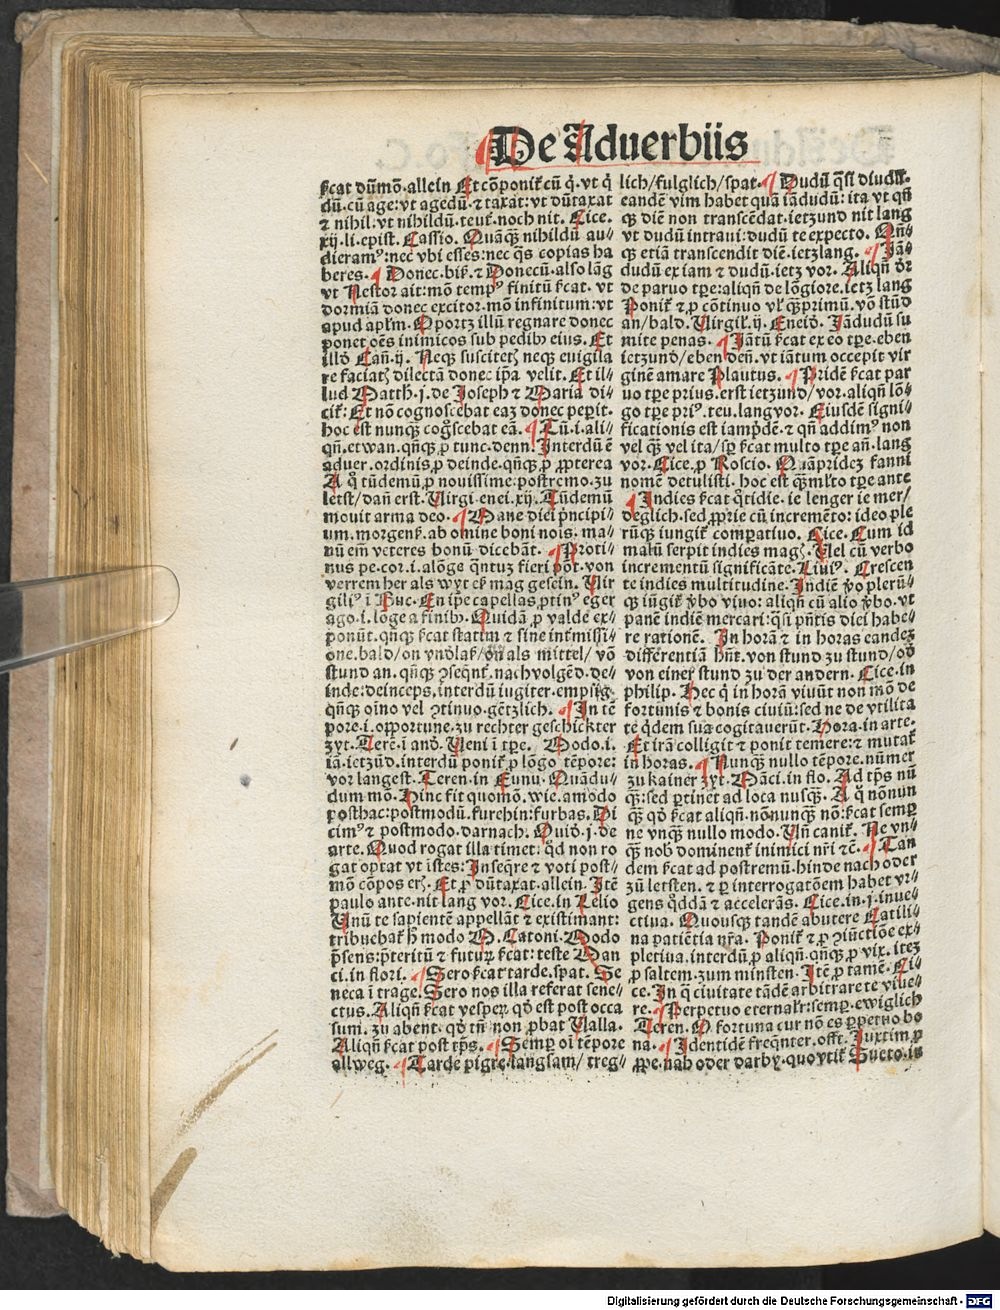 De Aduerbiis
ſicat dūmō. allein Et cōponit̄ cū q̇. vt q̇
dū. cū age: vt agedū. ⁊ taxat: vt dūtaxat
⁊ nihil: vt nihildū. teut̄. noch nit. Cice.
xij. li. epiſt. Caſſio. Quāqꝫ nihildū au⸗
dieramꝰ: nec vbi eſſes: nec q̄s copias ha
beres. Donec. biſz. ⁊ Donecū. alſo lāg
vt Neſtor ait: mō tempꝰ finitū ſicat. vt
dormiā donec excitor. mō infinitum: vt
apud apl̄m. Oportz illū regnare donec
ponet oēs inimicos ſub pedibꝰ eius. Et
illđ Cañ. ij. Neqꝫ ſuſcitetꝭ neqꝫ euigila
re faciatꝭ dilectā donec ip̄a velit. Et il⸗
lud Matth. j. de Joſeph ⁊ Maria di⸗
cit̄: Et nō cognoſcebat eaꝫ donec peꝑit.
hoc eſt nunqꝫ cog̊ſcebat eā. Tū. i. ali⸗
qñ. etwan. qñqꝫ ꝓ tunc. denn. Interdū ē
aduer. ordinis. ꝓ deinde. qñqꝫ ꝓ ꝓpterea
A q̊ tūdemū ꝓ nouiſſime. poſtremo. zu
letſt/ dañ erſt. Virgi. enei. xij. Tūdemū
mouit arma deo. Mane diei pͥncipi⸗
um. morgenſ. ab omine boni nois: ma⸗
nū em̄ veteres bonū dicebāt. Proti⸗
nus pe. cor. i. alōge qͣntuꝫ fieri pōt. von
verrem her als wyt ek mag geſein. Vir
giliꝰ ī Buc. En ip̄e capellas. ꝓtinꝰ eger
ago. i. lōge a finibꝰ. Quidā ꝓ valde ex⸗
ponūt. qñqꝫ ſicat ſtatim ⁊ ſine int̄miſſi⸗
one. bald/ on vnđlaſz/ on als mittel/ vō
ſtund an. qñqꝫ ↄſeqn̄t̄. nachvolgēd. de⸗
inde: deinceps. interdū iugiter. empſig.
qñqꝫ oīno vel ↄtinuo. gētzlich. In tē
pore. i. oꝑportune. zu rechter geſchickter
zyt. Terē. ī anđ. Veni ī tꝑe. Modo. i.
iā. ietzūđ. interdū ponit̄ ꝓ lōgo tēpore:
vor langeſt. Teren. in Eunu. Quādu⸗
dum mō. Hinc fit quomō. wie. amodo
ꝓ poſthac: poſtmodū. furehin: furbas. Di
cimꝰ ⁊ poſtmodo. darnach. Ouiđ. j. de
arte. Quod rogat illa timet: qđ non ro
gat optat vt iſtes: Inſeq̄re ⁊ voti poſt⸗
mō cōpos erꝭ. Et ꝓ dūtaxat. allein. Itē
paulo ante. nit lang vor. Cice. in Lelio
Vnū te ſapientē appellāt ⁊ exiſtimant:
tribuebat̄ h̊ modo M. Catoni. Modo
p̄ſens: p̄teritū ⁊ futuꝝ ſicat: teſte Man
ci. in flori. Sero ſicat tarde. ſpat. Se
neca ī trage. Sero nos illa referat ſene⸗
ctus. Aliqñ ſicat veſꝑe. qđ eſt poſt occa
ſum. zu abent. qđ tn̄ non ꝓbat Valla.
Aliqñ ſicat poſt tꝑs. Semꝑ oī tēpore
allweg. Tarde pigre. langſam/ treg⸗
lich/ fulglich/ ſpat. Dudū q̄ſi diudū.
eandē vim habet quā iādudū: ita vt qñ
qꝫ diē non tranſcēdat. ietzund nit lang
vt dudū intraui: dudū te expecto. Qñ⸗
qꝫ etiā tranſcendit diē. ietzlang. Jā⸗
dudū ex iam ⁊ dudū. ietz vor. Aliqñ đr
de paruo tꝑe: aliqñ de lōgiore. ietz lang
Ponit̄ ⁊ ꝓ cōtinuo vl̄ qꝫprimū. vō ſtūd
an/ bald. Virgil̄. ij. Eneiđ. Jādudū ſu
mite penas. Jātū ſicat ex eo tꝑe. eben
ietzunđ/ eben deñ. vt iātum occepit vir
ginē amare Plautus. Pridē ſicat par
uo tꝑe prius. erſt ietzunđ/ vor. aliqñ lō⸗
go tꝑe priꝰ. teu. lang vor. Eiuſdē ſigni⸗
ficationis eſt iamp̄dē. ⁊ qñ addimꝰ non
vel qꝫ vel ita/ ſꝑ ſicat multo tꝑe añ. lang
vor. Cice. ꝓ Roſcio. Quāpridez fanni
nomē detuliſti. hoc eſt qꝫml̄to tꝑe ante
Indies ſicat qͦtidie. ie lenger ie mer/
deglich. ſed ꝓprie cū incremēto: ideo ple
rūqꝫ iungit̄ comꝑatiuo. Cice. Cum id
malū ſerpit indies magꝭ. Vel cū verbo
incrementū ſignificāte. Liuiꝰ. Creſcen
te indies multitudine. Indiē ꝟo plerū⸗
qꝫ iūgit̄ ꝟbo viuo: aliqñ cū alio ꝟbo. vt
panē indiē mercari: q̄ſi p̄ntis diei habe⸗
re rationē. In horā ⁊ in horas eandez
differentiā hn̄t. von ſtund zu ſtund/ ođ
von einer ſtund zu der andern. Cice. in
philip. Hec q̇ in horā viuūt non mō de
fortunis ⁊ bonis ciuiū: ſed ne de vtilita
te q̇dem ſua cogitauerūt. Hora. in arte.
Et irā colligit ⁊ ponit temere: ⁊ mutat̄
in horas. Nunqꝫ nullo tēpore. nūmer
zu kainer zyt. Māci. in flo. Ad tꝑs nū
qꝫ: ſed ꝑtinet ad loca nuſqꝫ. A q̊ nōnun
qꝫ qđ ſicat aliqñ. nōnunqꝫ nō: ſicat ſemꝑ
ne vnqꝫ nullo modo. Vn̄ canit̄. Ne vn⸗
qꝫ nob dominent̄ inimici nr̄i ⁊c̄. Tan
dem ſicat ad poſtremū. hinde nach oder
zū letſten. ⁊ ꝑ interrogatōem habet vr⸗
gens q̇ddā ⁊ accelerās. Cice. in. j. inue⸗
ctiua. Quouſqꝫ tandē abutere Catili⸗
na patiētia nr̄a. Ponit̄ ⁊ ꝓ ↄiūctiōe ex⸗
pletiua. interdū ꝓ aliqñ. qñqꝫ ꝓ vix. itez
ꝓ ſaltem. zum minſten. Itē ꝓ tamē. Ci⸗
ce. In q̄ ciuitate tādē arbitrare te viue⸗
re. Perpetuo eternalr̄: ſemꝑ. ewiglich
Teren. O fortuna cur nō es ꝑpetuo bo
na. Identidē freqn̄ter. offt. Juxtim ꝓ
ꝓpe. nah oder darby. quoytiſz Sueto. in
Digitalisierung gefördert durch die Deutsche Forschungsgemeinschaft - DFG